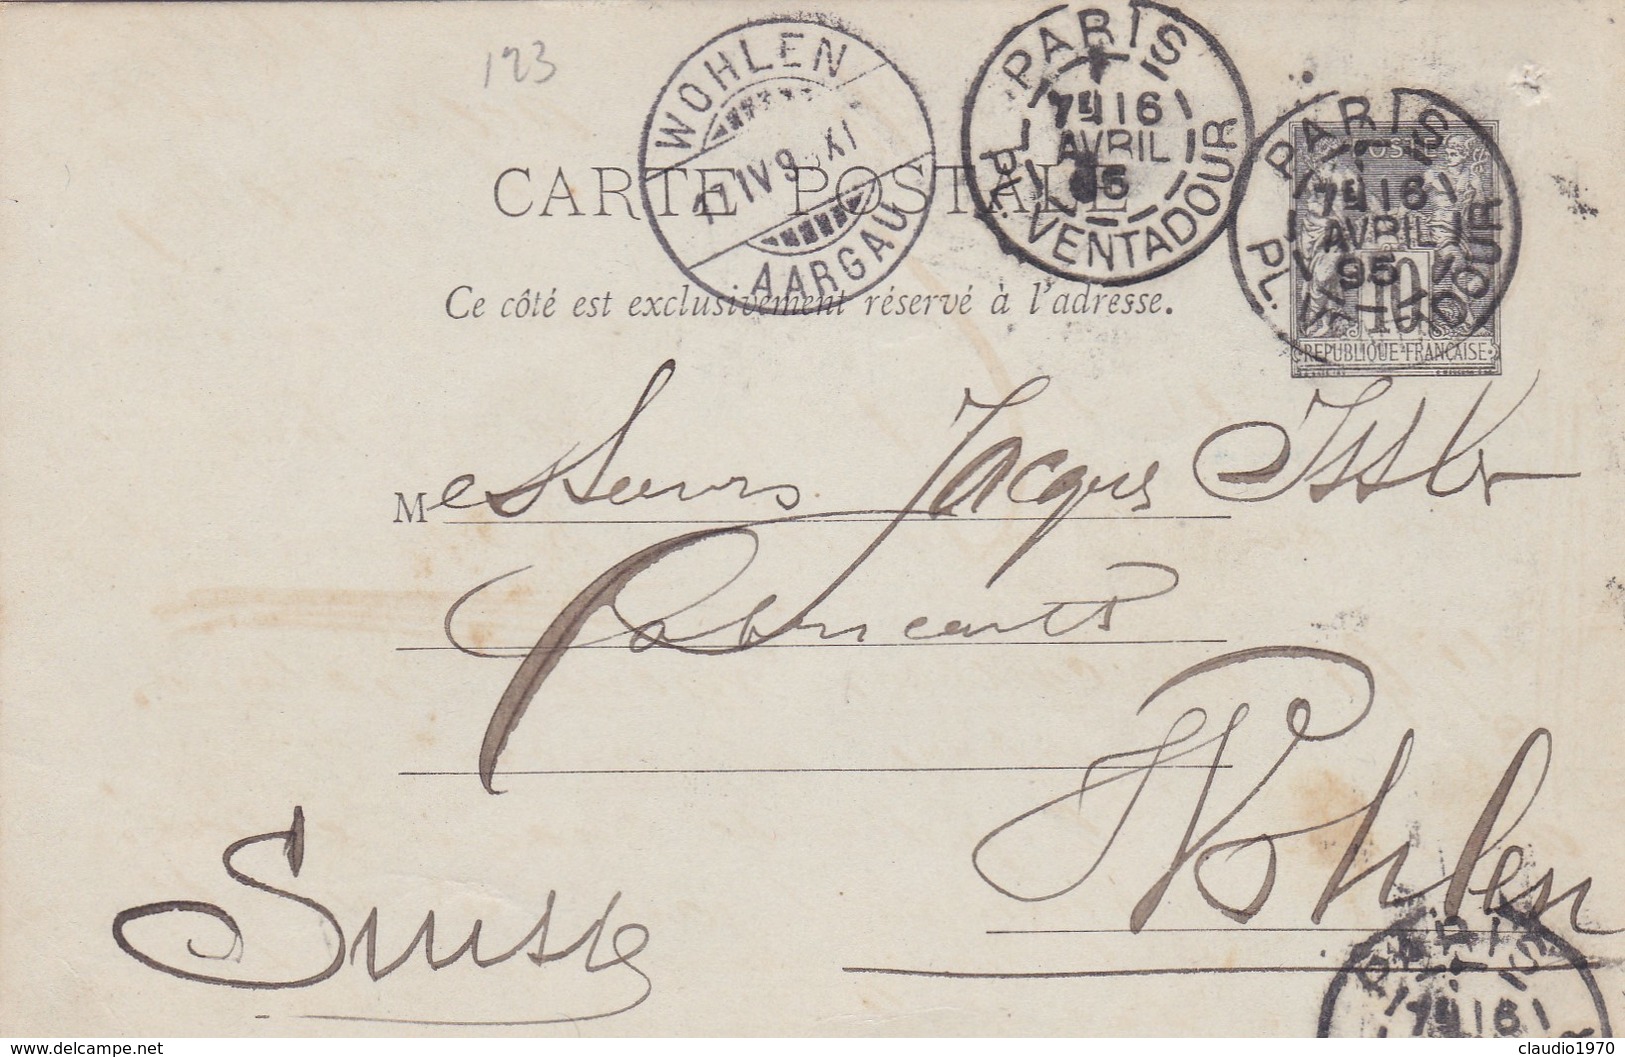 123
WOHLEN
17 IV 9 XI
AARGAU
PARIS
7E 16
AVRIL
95
PL. VENTADOUR
PARIS
7E 16
AVRIL
95
PL. VENTADOUR
10
REPUBLIQUE FRANÇAISE
CARTE POSTALE
Ce côté est exclusivement réservé à l'adresse.
Messieurs Jacques Issler
Fabricants
Wohlen
Suisse
PARIS
7E 16
delcampe.net
claudio1970